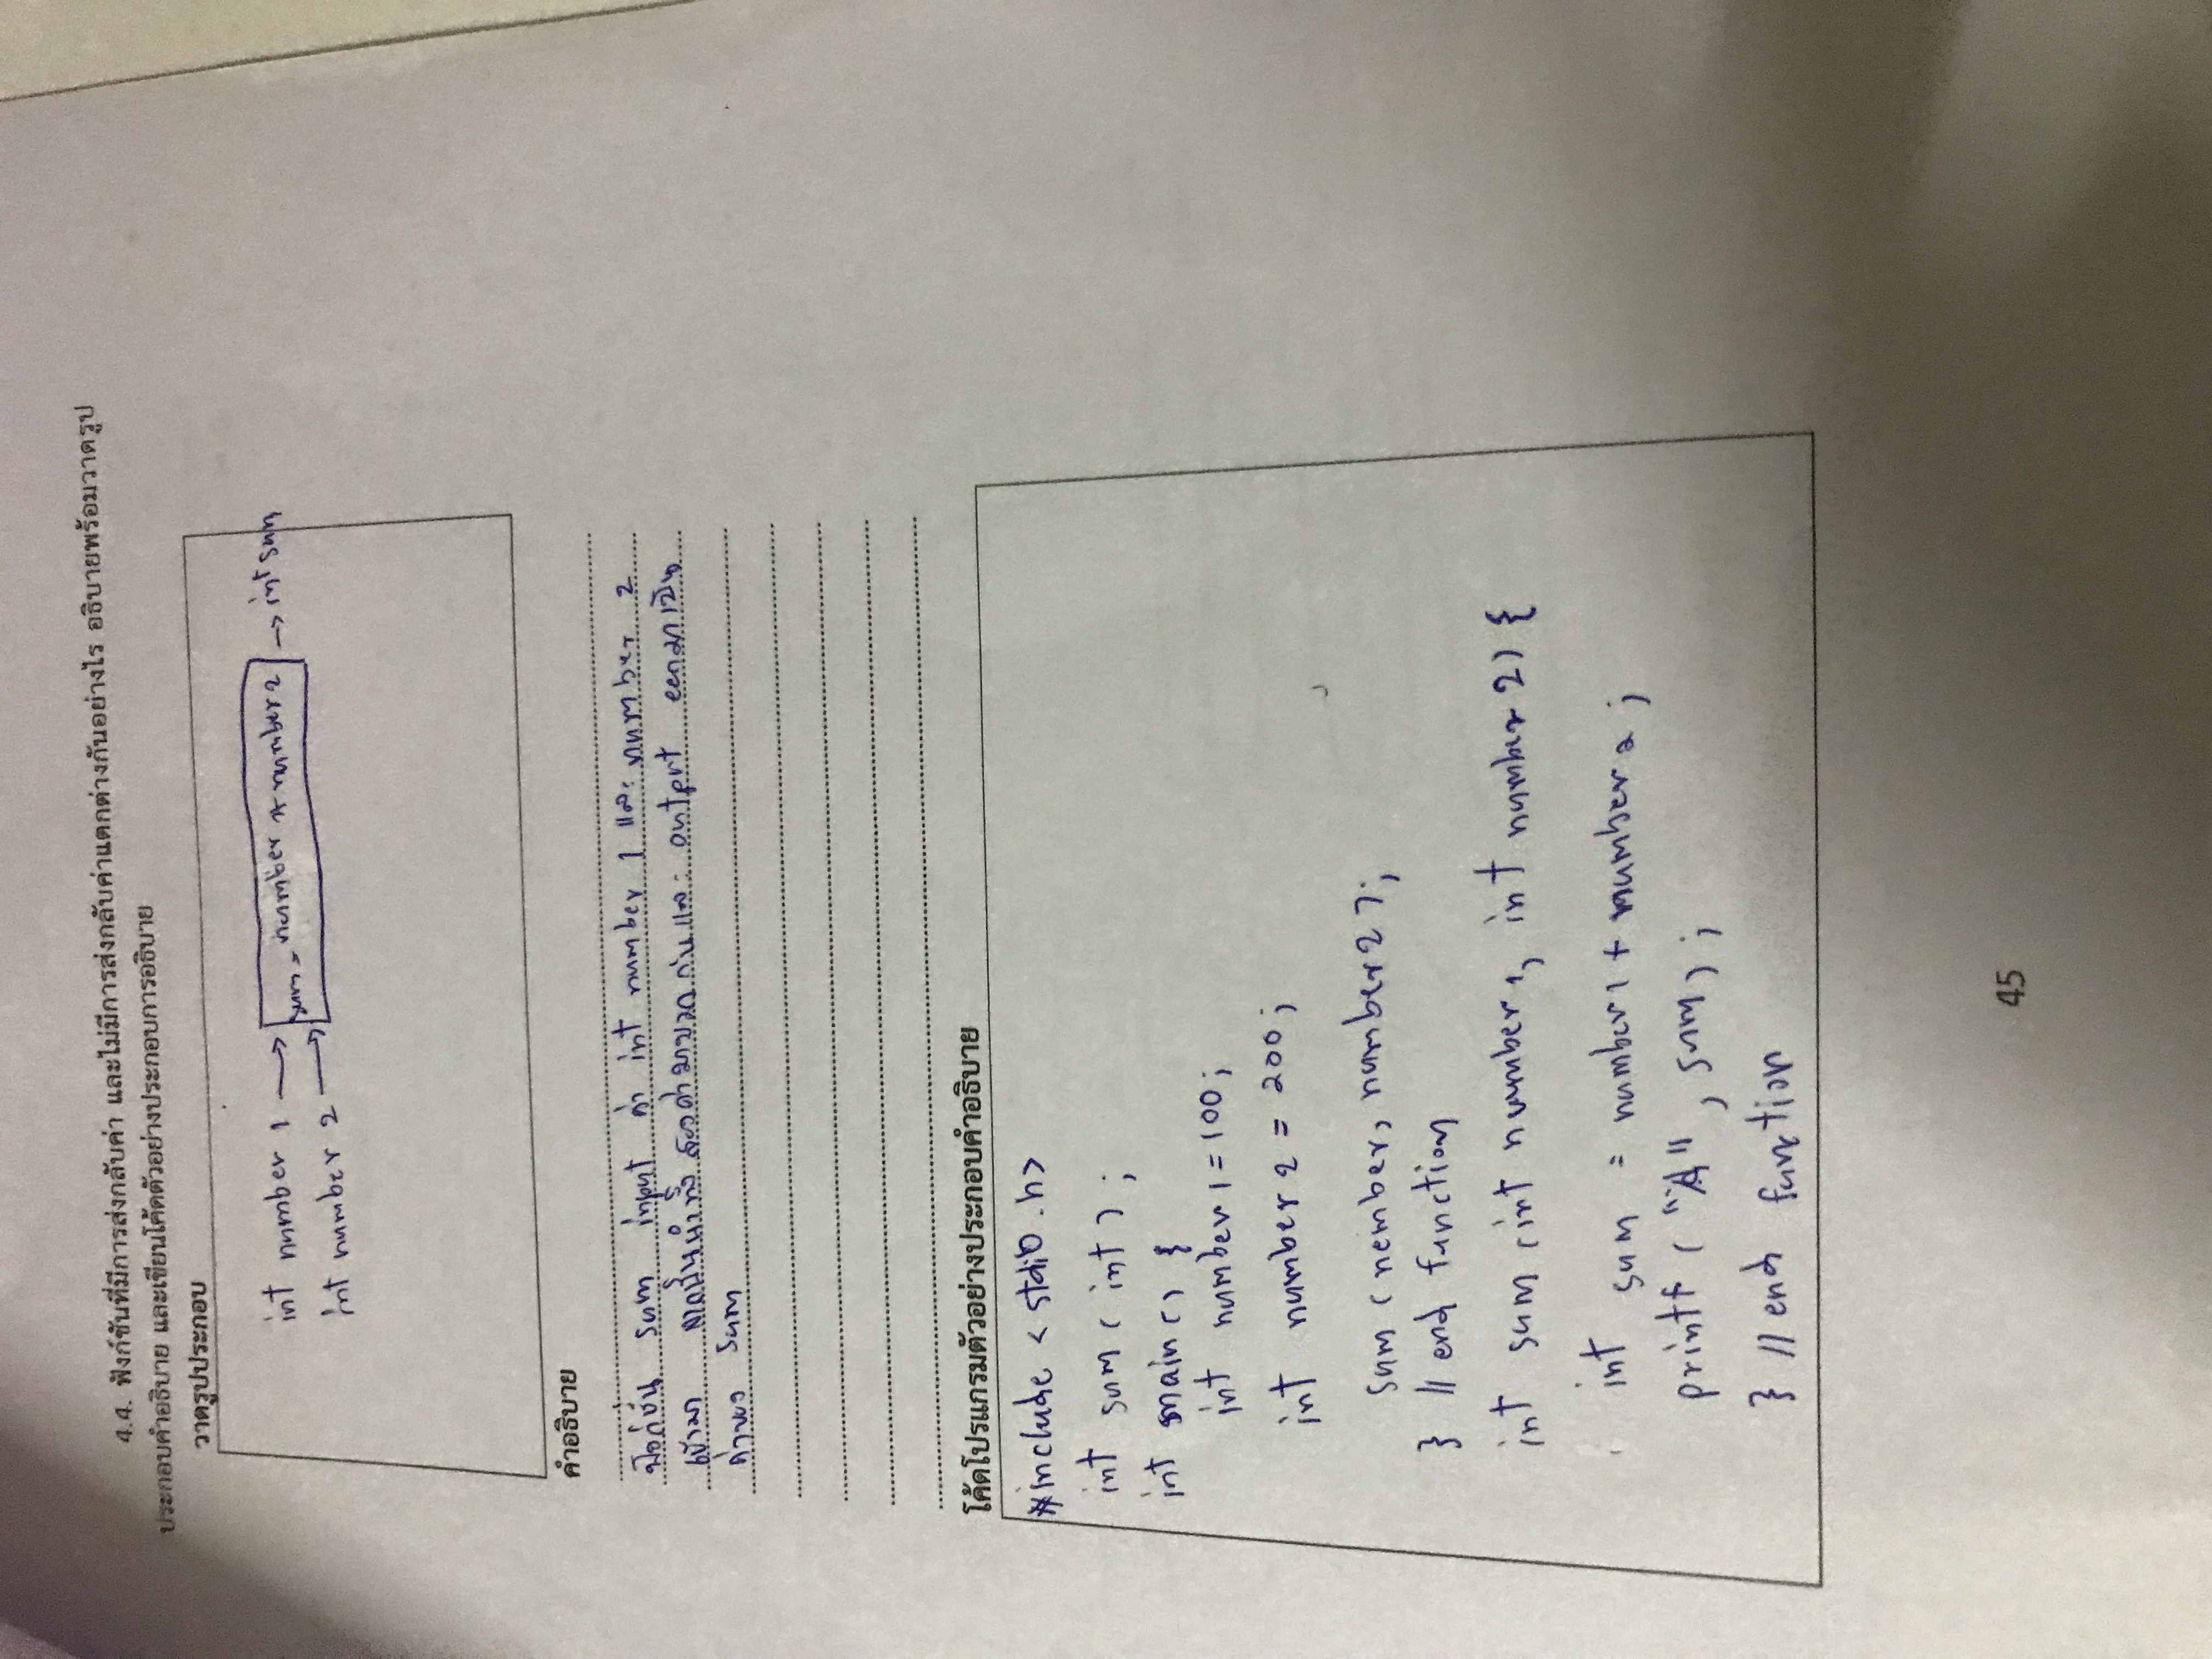 4.4. ฟังก์ชันที่มีการส่งกลับค่า และไม่มีการส่งกลับค่าแตกต่างกันอย่างไร อธิบายพร้อมวาดรูป
ประกอบคำอธิบาย และเขียนโค้ดตัวอย่างประกอบการอธิบาย
วาดรูปประกอบ
int number 1 → sum = number 1 + number 2 → int sum
int number 2 →
คำอธิบาย
ฟังก์ชั่น sum input ค่า int number 1 และ number 2
เข้ามา จากนั้นนำทั้งสองค่ามาบวกกันและ output ออกมาเป็น
ค่าของ sum
โค้ดโปรแกรมตัวอย่างประกอบคำอธิบาย
#include <stdio.h>
int sum (int);
int main() {
int number1 = 100;
int number2 = 200;
sum (nember, number2);
} // end function
int sum (int number1, int number2) {
int sum = number1 + number2;
printf ("", sum);
} // end function
45